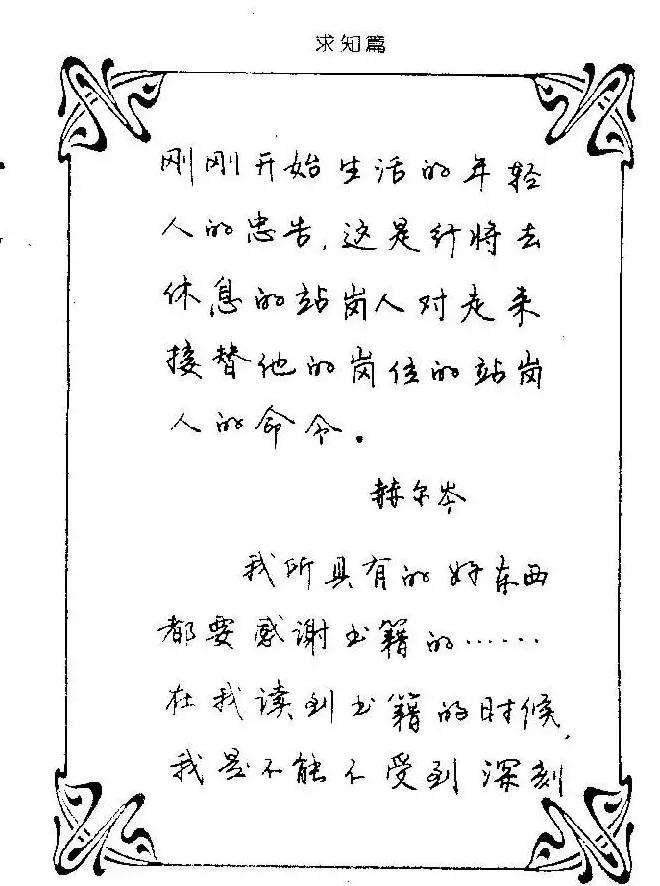 求知篇
刚刚开始生活的年轻
人的忠告，这是行将去
休息的站岗人对走来
接替他的岗位的站岗
人的命令。
赫尔岑
我所具有的好东西
都要感谢书籍的……
在我读到书籍的时候，
我是不能不受到深刻